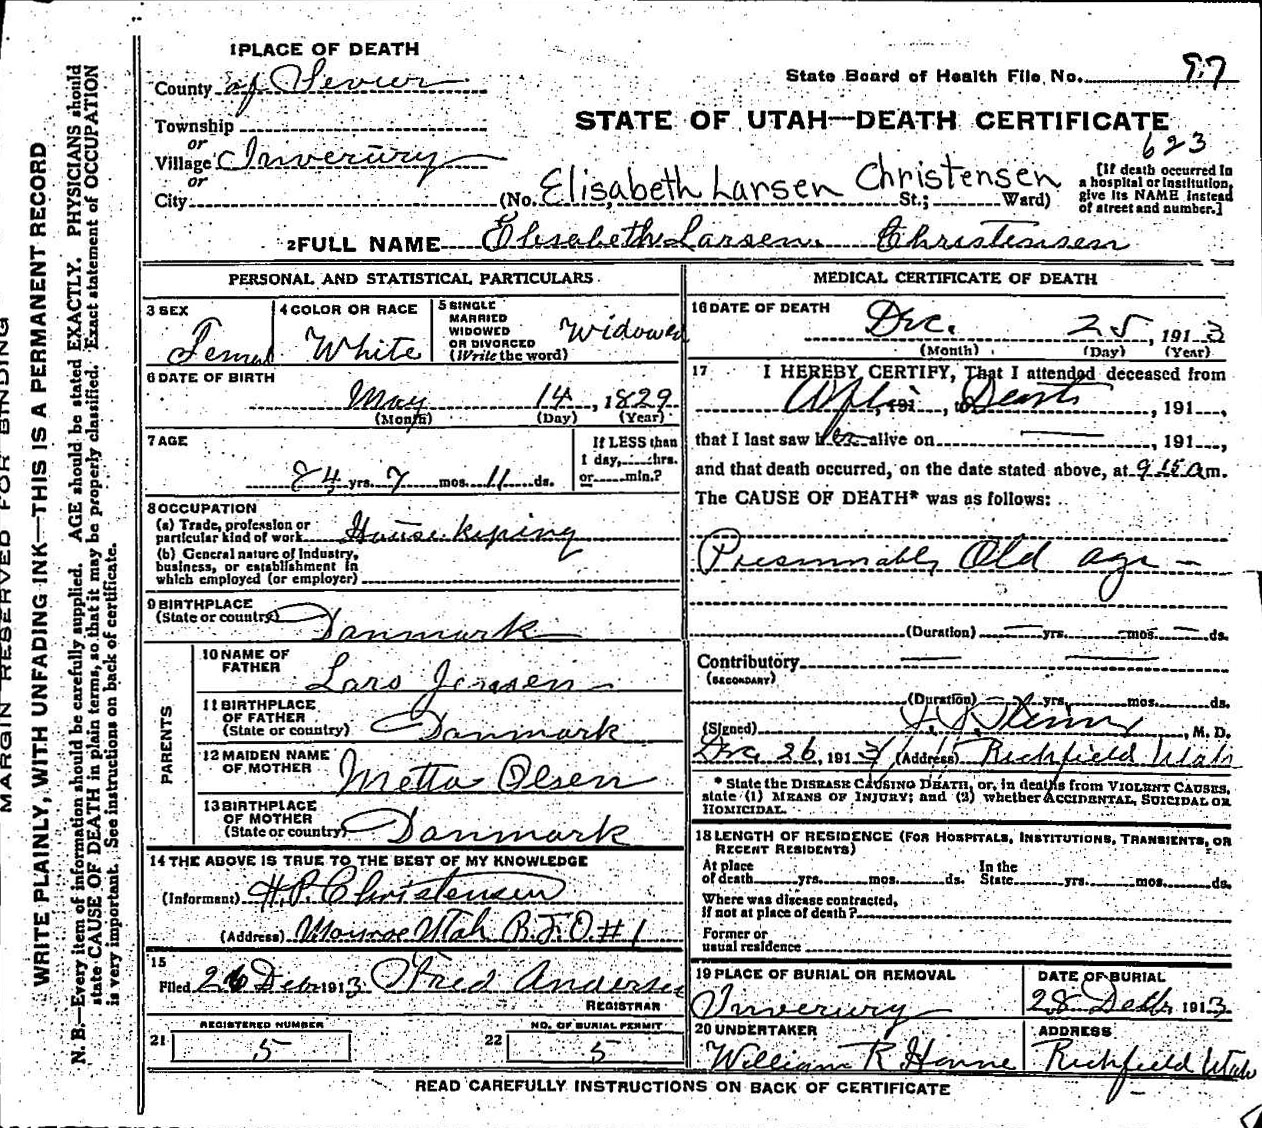 MARGIN RESERVED FOR BINDING
WRITE PLAINLY, WITH UNFADING INK—THIS IS A PERMANENT RECORD
N. B.—Every item of information should be carefully supplied. AGE should be stated EXACTLY. PHYSICIANS should
state CAUSE OF DEATH in plain terms, so that it may be properly classified. Exact statement of OCCUPATION
is very important. See instructions on back of certificate.
1 PLACE OF DEATH
County of Sevier
State Board of Health File No. 97
Township
STATE OF UTAH—DEATH CERTIFICATE
623
or
Village Inverury
or
City
(No. Elisabeth Larsen Christensen St.; Ward)
[If death occurred in
a hospital or institution,
give its NAME instead
of street and number.]
2 FULL NAME Elisabeth Larsen Christensen
PERSONAL AND STATISTICAL PARTICULARS
3 SEX
Femal
4 COLOR OR RACE
White
5 SINGLE
MARRIED
WIDOWED
OR DIVORCED
(Write the word)
Widowed
6 DATE OF BIRTH
May 14, 1829
(Month) (Day) (Year)
7 AGE
84 yrs. 7 mos. 11 ds.
If LESS than
1 day, hrs.
or min.?
8 OCCUPATION
(a) Trade, profession or
particular kind of work House keping
(b) General nature of Industry,
business, or establishment in
which employed (or employer)
9 BIRTHPLACE
(State or country) Danmark
PARENTS
10 NAME OF
FATHER
Lars Jensen
11 BIRTHPLACE
OF FATHER
(State or country) Danmark
12 MAIDEN NAME
OF MOTHER
Metta Olsen
13 BIRTHPLACE
OF MOTHER
(State or country) Danmark
14 THE ABOVE IS TRUE TO THE BEST OF MY KNOWLEDGE
(Informant) H. P. Christensen
(Address) Monroe Utah R.F.D # 1
15
Filed 26 Debr 1913 Fred Andersen
REGISTRAR
REGISTERED NUMBER
21 5
NO. OF BURIAL PERMIT
22 5
MEDICAL CERTIFICATE OF DEATH
16 DATE OF DEATH
Dec. 25, 1913
(Month) (Day) (Year)
17 I HEREBY CERTIFY, That I attended deceased from
After, 191 , to Death, 191 ,
that I last saw her alive on , 191 ,
and that death occurred, on the date stated above, at 9 15 a m.
The CAUSE OF DEATH* was as follows:
Presumably Old age —
(Duration) yrs. mos. ds.
Contributory
(SECONDARY)
(Duration) yrs. mos. ds.
(Signed) , M. D.
Dec 26, 1913 (Address) Richfield Utah
* State the DISEASE CAUSING DEATH, or, in deaths from VIOLENT CAUSES,
state (1) MEANS OF INJURY; and (2) whether ACCIDENTAL, SUICIDAL OR
HOMICIDAL.
18 LENGTH OF RESIDENCE (FOR HOSPITALS, INSTITUTIONS, TRANSIENTS, OR
RECENT RESIDENTS)
At place
of death yrs. mos. ds.
In the
State yrs. mos. ds.
Where was disease contracted,
if not at place of death?
Former or
usual residence
19 PLACE OF BURIAL OR REMOVAL
Inverury
DATE OF BURIAL
28 Debr 1913
20 UNDERTAKER
William R Horne
ADDRESS
Richfield Utah
READ CAREFULLY INSTRUCTIONS ON BACK OF CERTIFICATE